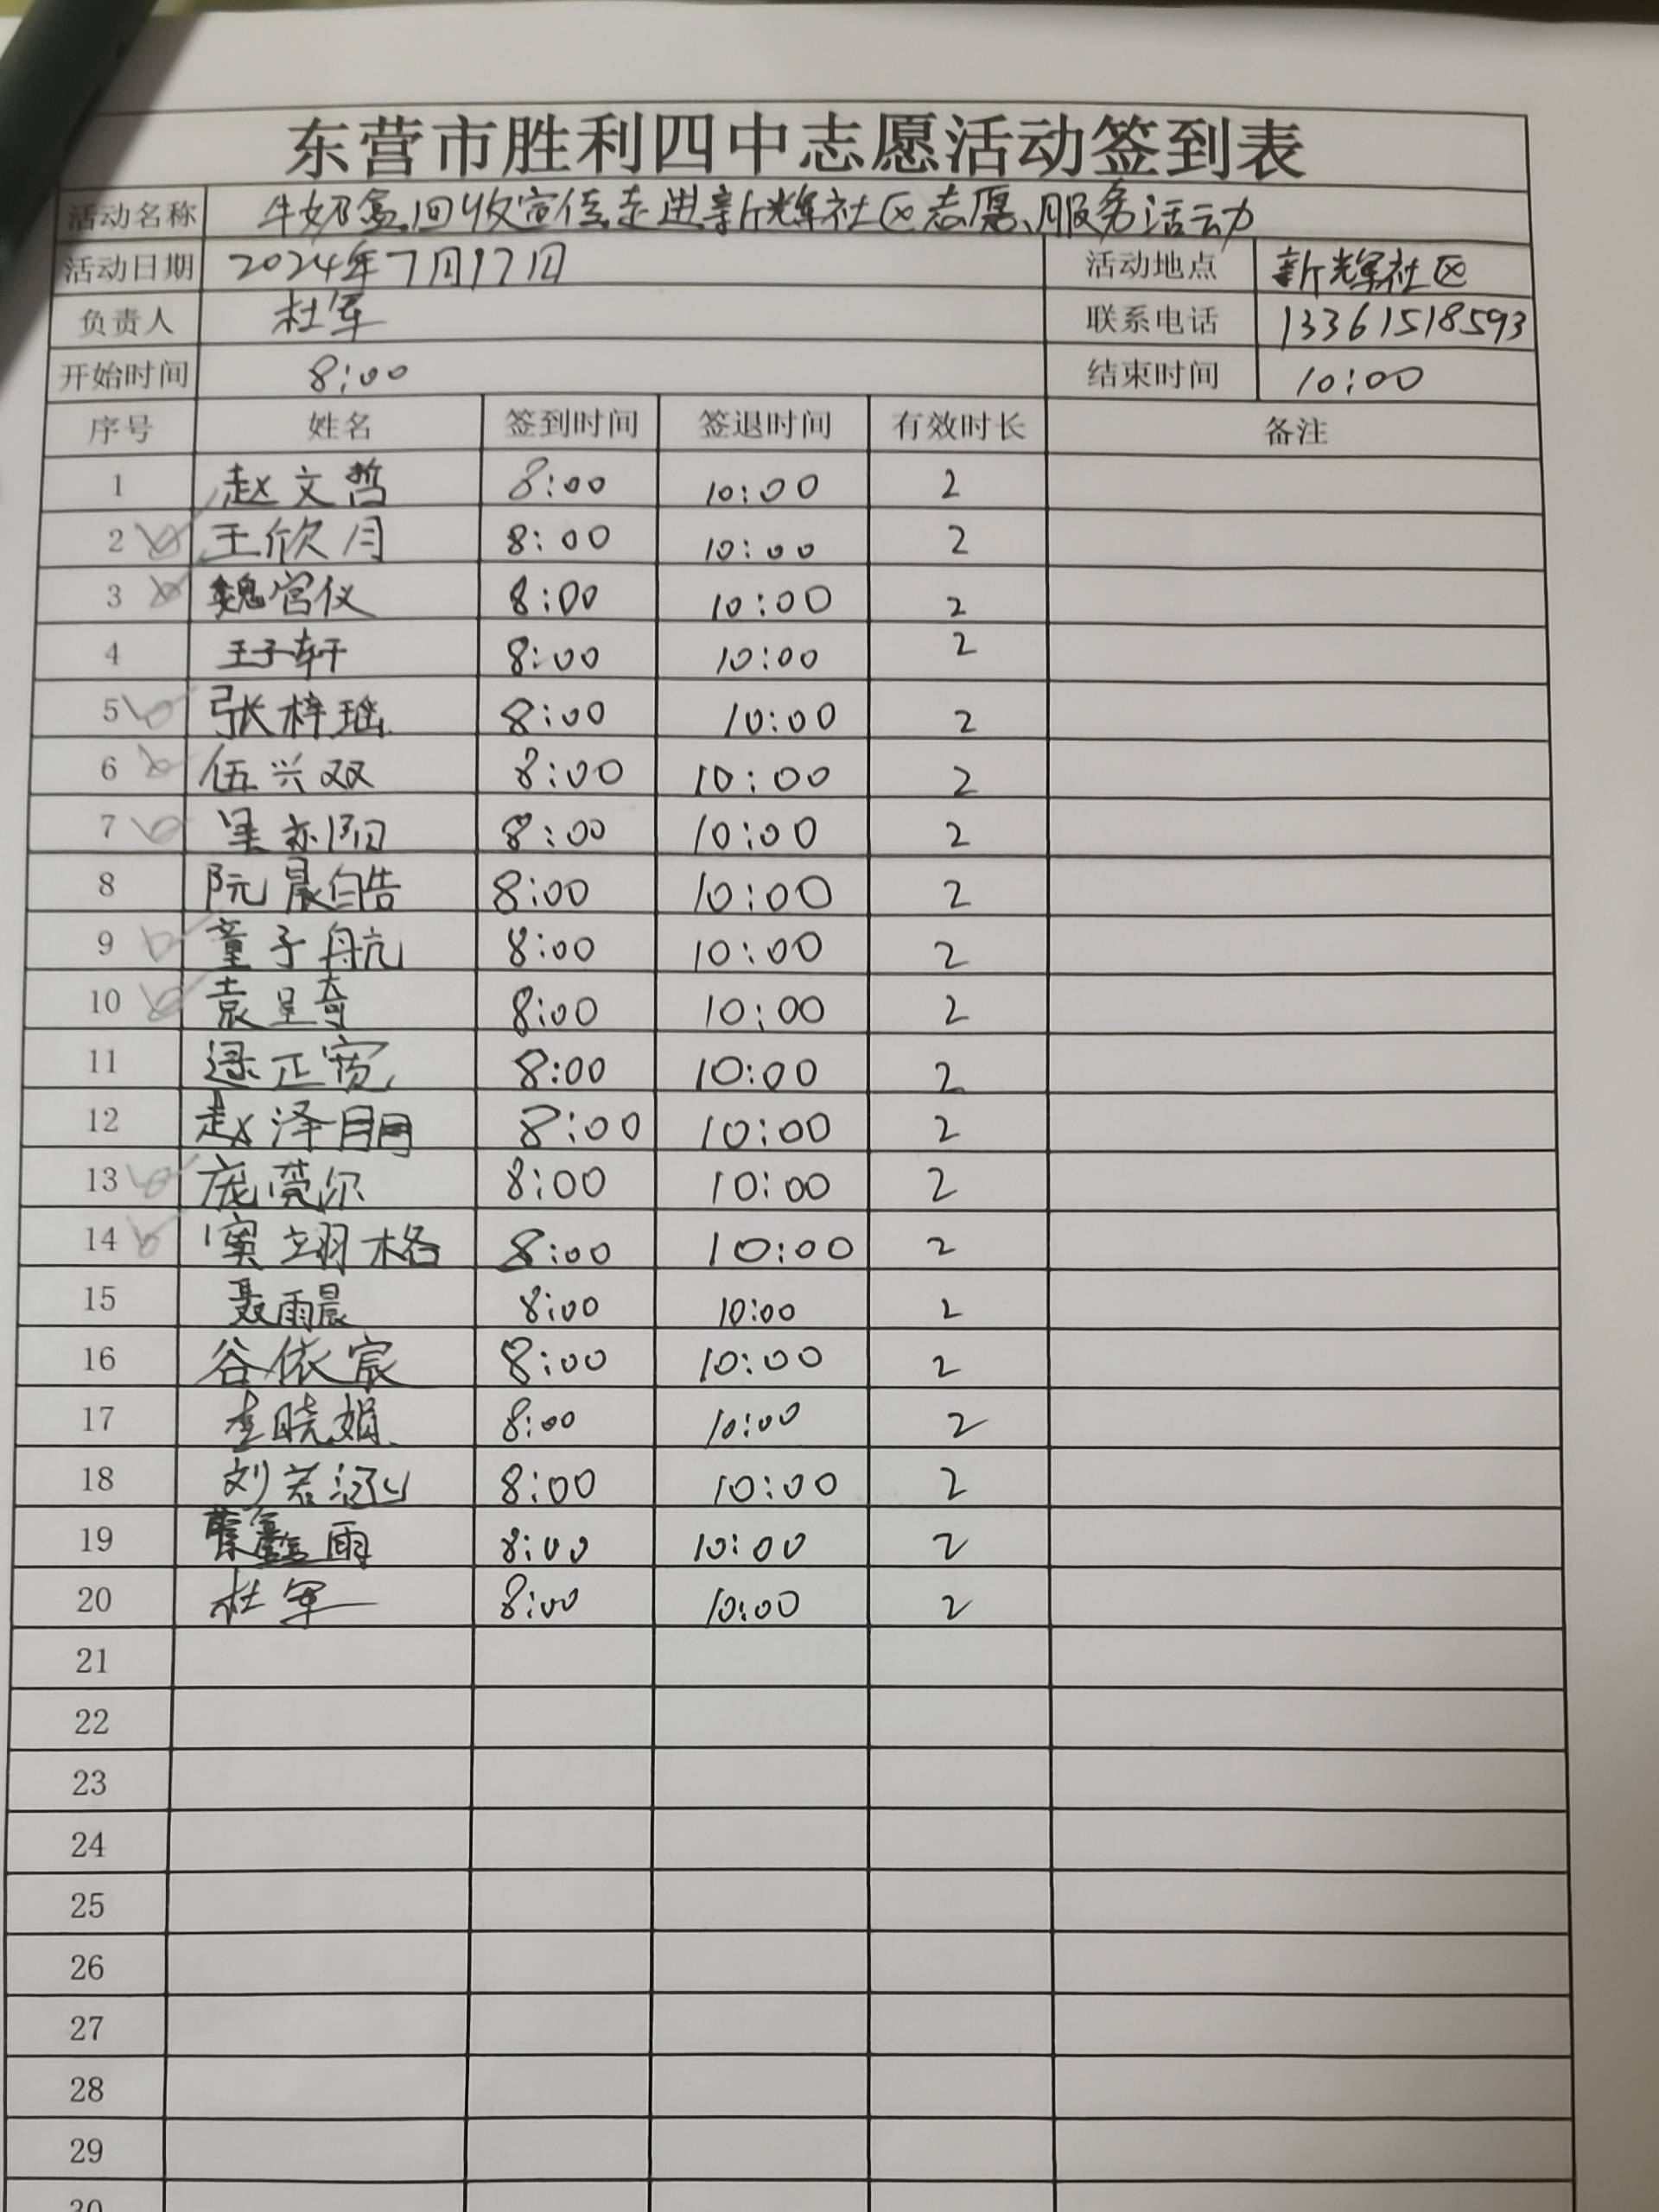 东营市胜利四中志愿活动签到表
活动名称 牛奶盒回收宣传走进新辉社区志愿服务活动
活动日期 2024年7月17日 活动地点 新辉社区
负责人 杜军 联系电话 13361518593
开始时间 8:00 结束时间 10:00
序号 姓名 签到时间 签退时间 有效时长 备注
1 赵文哲 8:00 10:00 2
2 王欣月 8:00 10:00 2
3 魏宫仪 8:00 10:00 2
4 王子轩 8:00 10:00 2
5 张梓瑶 8:00 10:00 2
6 伍兴双 8:00 10:00 2
7 亦阳 8:00 10:00 2
8 阮晨皓 8:00 10:00 2
9 童子航 8:00 10:00 2
10 袁呈奇 8:00 10:00 2
11 逯正宽 8:00 10:00 2
12 赵泽明 8:00 10:00 2
13 庞莞尔 8:00 10:00 2
14 窦翊格 8:00 10:00 2
15 聂雨晨 8:00 10:00 2
16 谷依宸 8:00 10:00 2
17 李晓娟 8:00 10:00 2
18 刘若涵 8:00 10:00 2
19 雨 8:00 10:00 2
20 杜军 8:00 10:00 2
21
22
23
24
25
26
27
28
29
30